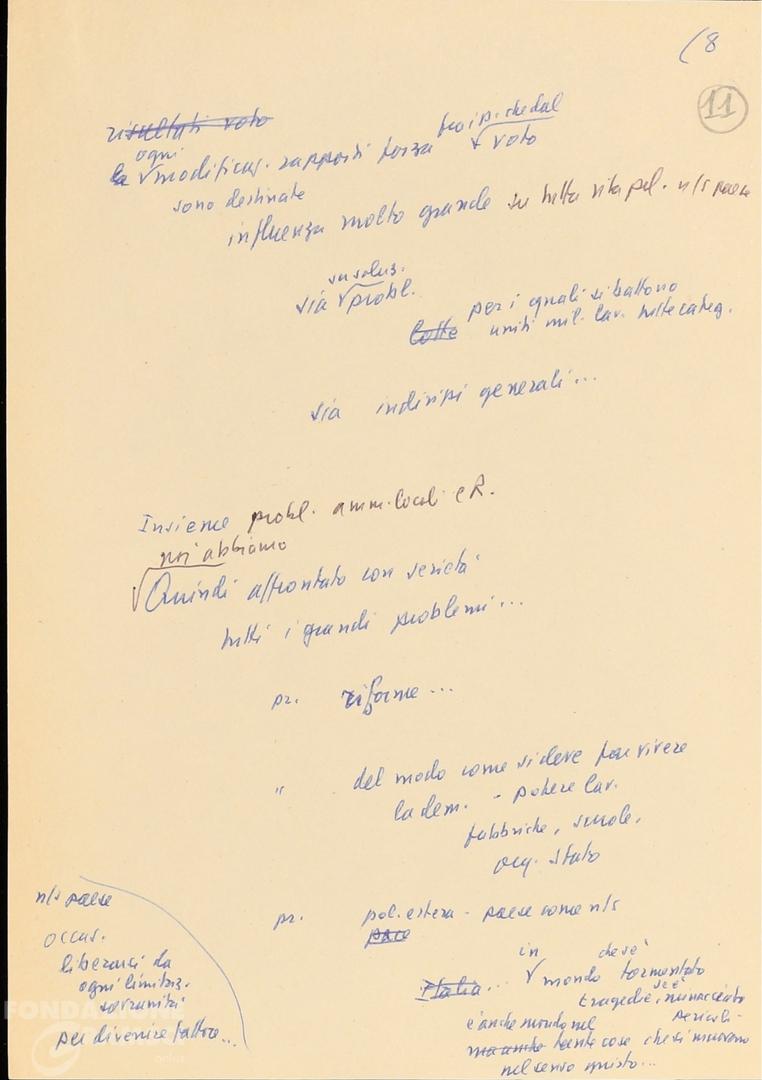 (8
11
risultati voto
ogni                                  fra i p. che dal
la √modificaz. rapporti forza √ voto
sono destinate
influenza molto grande su tutta vita pol. n/s paese
su soluz.
sia √probl.
per i quali si battono
lotte uniti mil. lav. tutte categ.
sia indirizzi generali...
Insieme probl. amm. locali e R.
noi abbiamo
√Quindi affrontato con serietà
tutti i grandi problemi...
pr. riforme...
" del modo come si deve far vivere
la dem. - potere lav.
fabbriche, scuole,
org. stato
pr. pol. estera - paese come n/s
pace
in che è
Italia... √ mondo tormentato
tragedie, minacciato
pericoli
è anche mondo nel
ma anche tante cose che si muovono
nel senso giusto...
n/s paese
occas.
liberarsi da
ogni limitaz.
sovranità
per divenire fattore...
FONDAZIONE
onlus